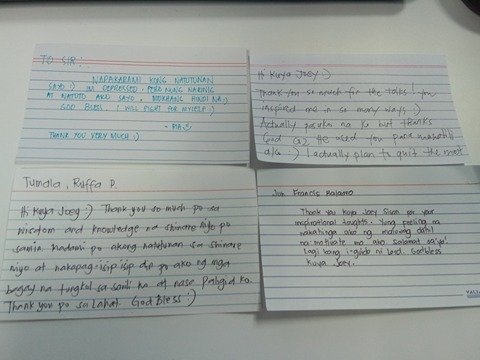 TO SIR:
NAPAKARAMI KONG NATUTUNAN
SAYO :) IM DEPRESSED, PERO NUNG NAKINIG
AT NATUTO AKO SAYO, MUKHANG HINDI NA ;)
GOD BLESS, I WILL FIGHT FOR MYSELF :)
THANK YOU VERY MUCH :)
Hi Kuya Joey :)
Thank you so much for the talks! You
inspired me in so many ways :)
Actually na ko but thanks
God He used you para
ako :) I actually plan to quit the
Tumala, Ruffa P.
Hi Kuya Joey :) Thank you so much po sa
wisdom and knowledge na shinare niyo po
samin. Madami po akong natutunan sa shinare
niyo at nakapag-isip isip din po ako ng mga
bagay na tungkol sa sarili ko at nasa paligid ko.
Thank you po sa Lahat. God Bless :)
Joh Francis
Thank you Kuya Joey Sison for your
inspirational thoughts. Yung feeling na
nakahinga ako ng maluwag dahil
na-motivate mo ako. Salamat sa'yo!
Lagi kang i-guide ni Lord. Godbless
Kuya Joey.